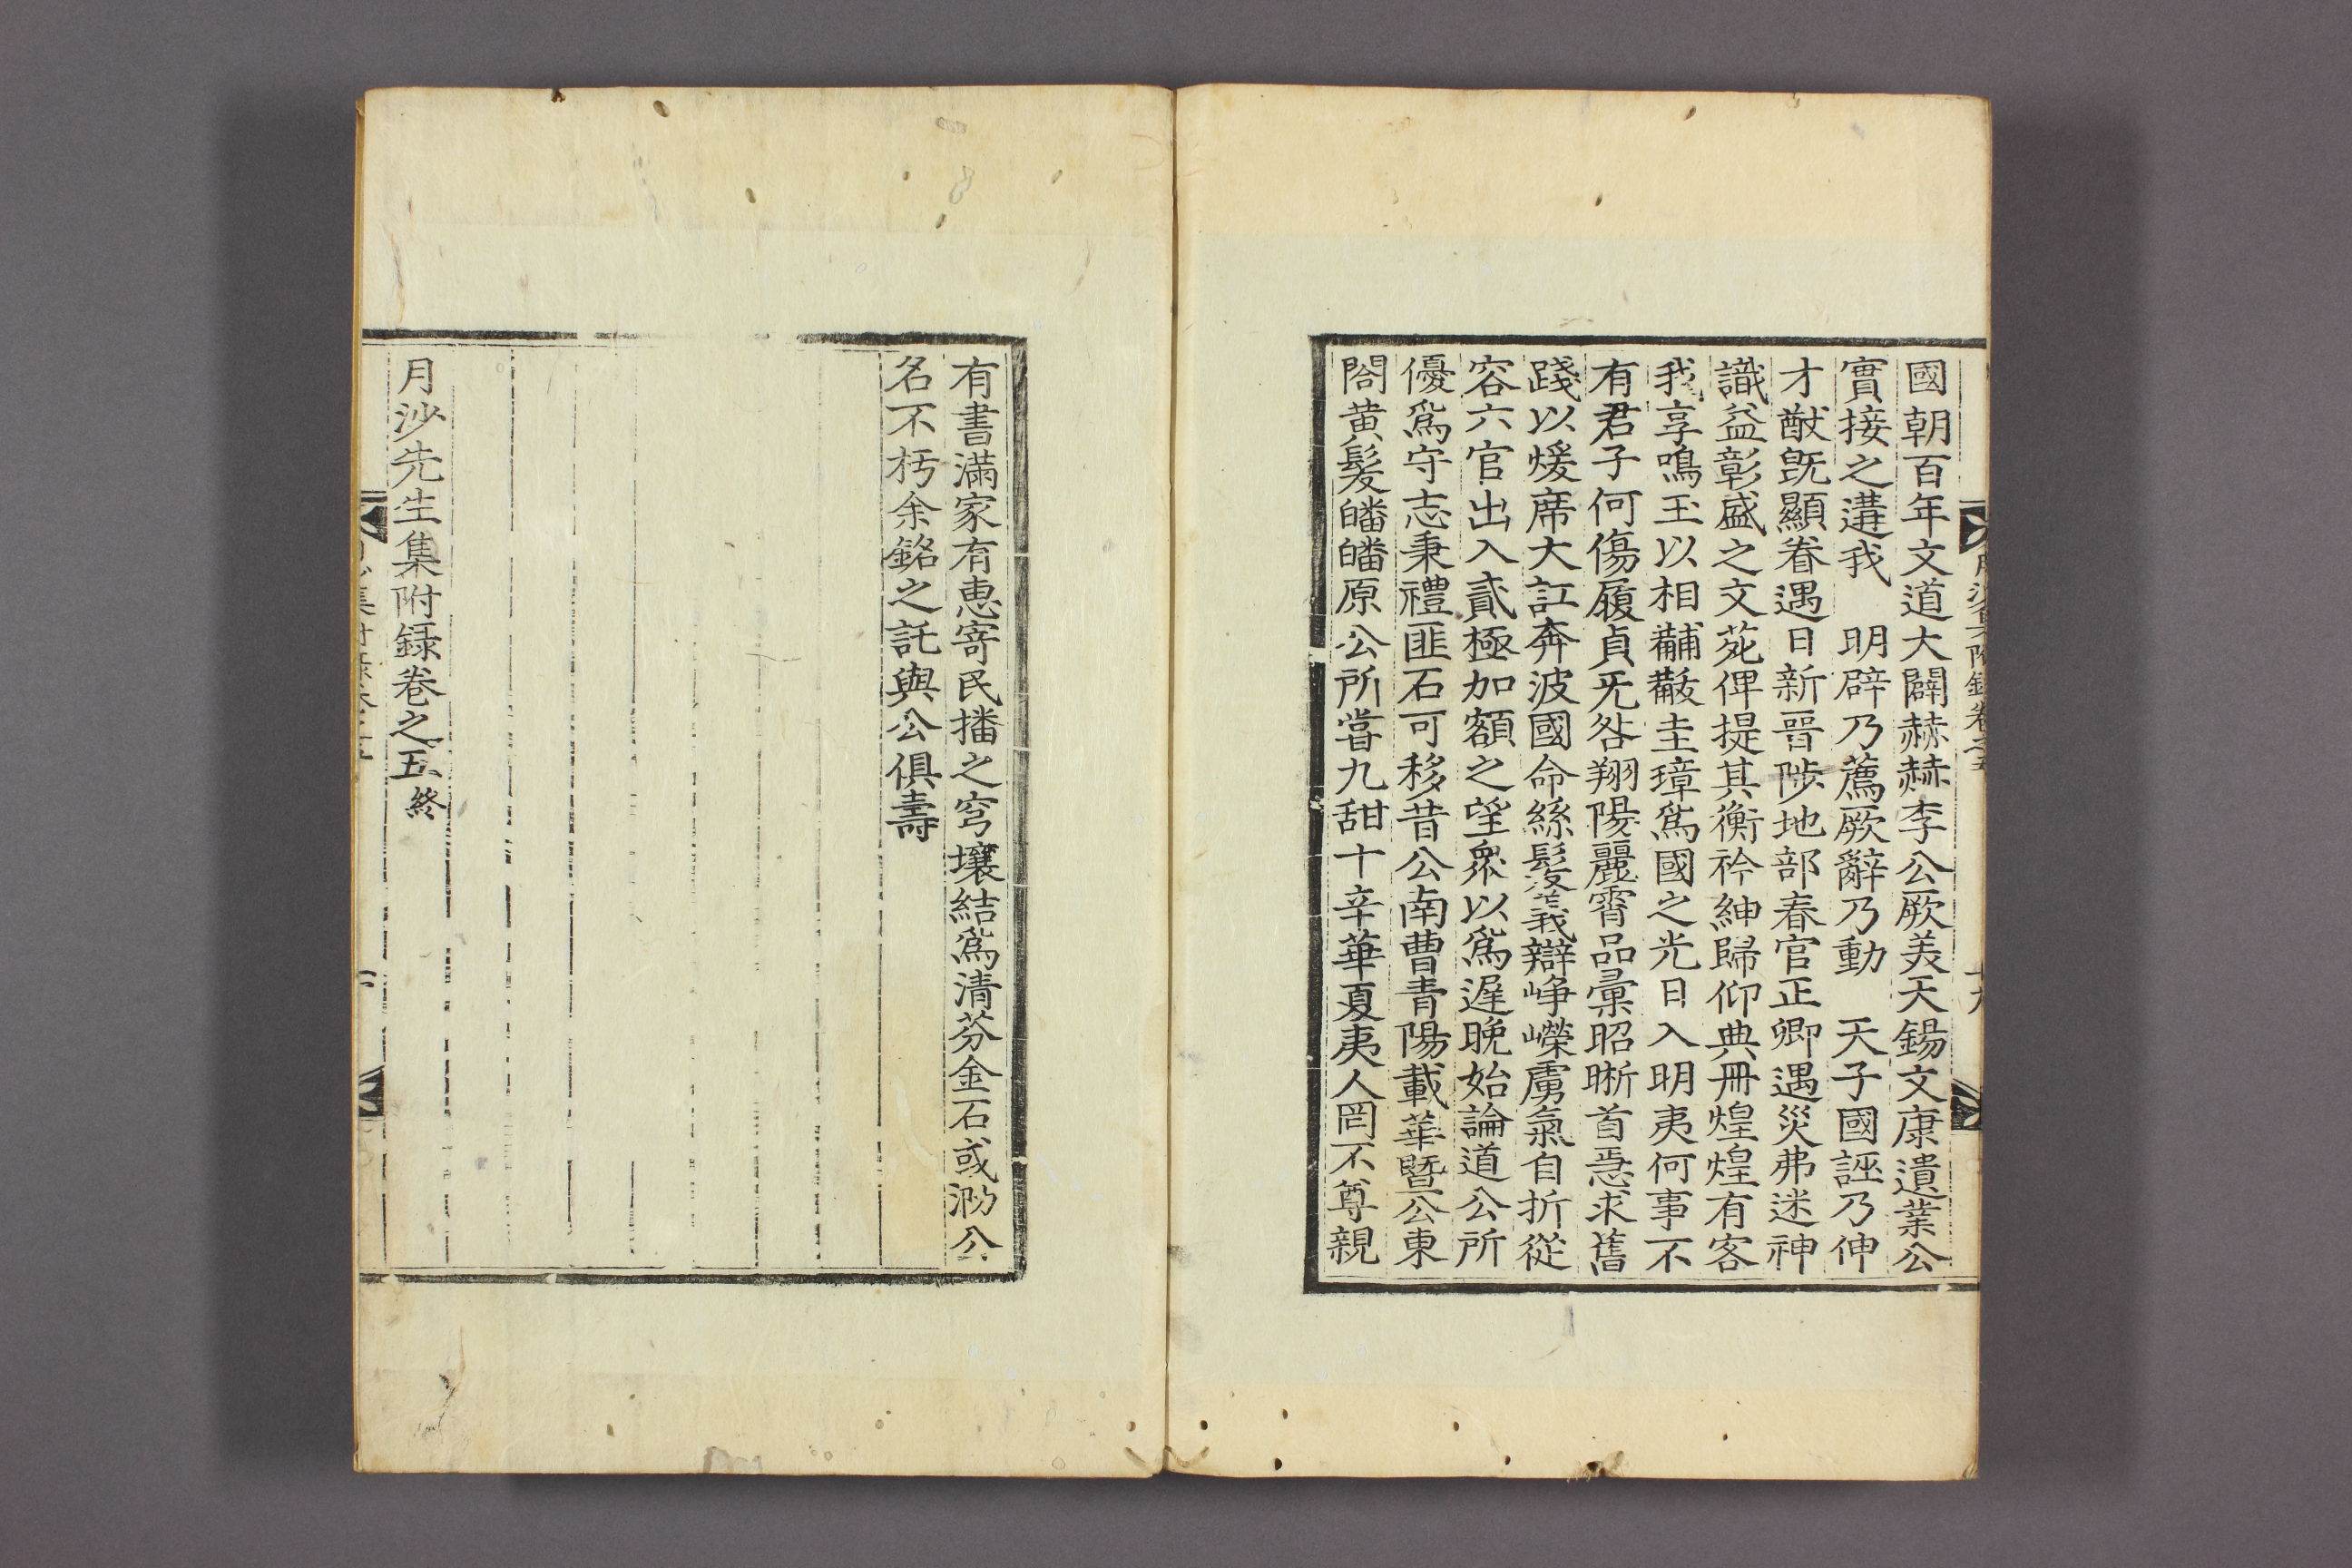 國朝百年文道大闢赫赫李公厥美天錫文康遺業公
實接之遘我　明辟乃薦厥辭乃動　天子國誣乃伸
才猷旣顯眷遇日新晉陟地部春官正卿遇災弗迷神
識益彰盛之文苑俾提其衡衿紳歸仰典冊煌煌有客
我享鳴玉以相黼黻圭璋爲國之光日入明夷何事不
有君子何傷履貞旡咎翔陽麗霄品彙昭晣首焉求舊
踐以煖席大訌奔波國命絲髮沒義辯崢嶸虜氣自折從
容六官出入貳極加額之望衆以爲遲晚始論道公所
優爲守志秉禮匪石可移昔公南曹青陽載華暨公東
閤黄髮皤皤原公所嘗九甜十辛華夏夷人罔不尊親
有書滿家有惠寄民播之穹壤結爲清芬金石或泐公
名不朽余銘之託與公俱壽
月沙先生集附録卷之五 終